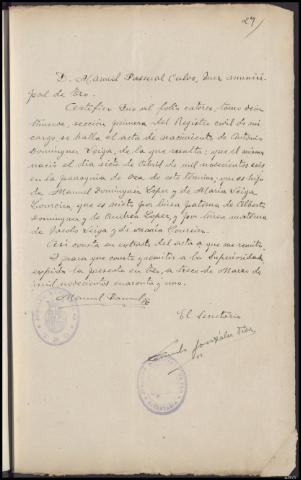 29
D. Manuel Pascual Calvo, Juez munici-
pal de Oza.
Certifico: Que al folio catorce, tomo
sección primera del Registro civil de mi
cargo, se halla el acta de nacimiento de Antonio
Dominguez Leiga, de la que resulta: que el mismo
nació el día siete de Abril de mil novecientos seis
en la parroquia de Oza de este término; que es hijo
de Manuel Dominguez Lopez y de María Leiga
que es nieto por línea paterna de Alberto
Dominguez y de Andrea Lopez, y por línea materna
de Leiga y de María
Así consta en extracto del acta a que me remito.
Y para que conste y remitir a la Superioridad
expido la presente en Oza, a trece de Marzo de
mil novecientos cuarenta y uno.
Manuel Pascual
El Secretario
González